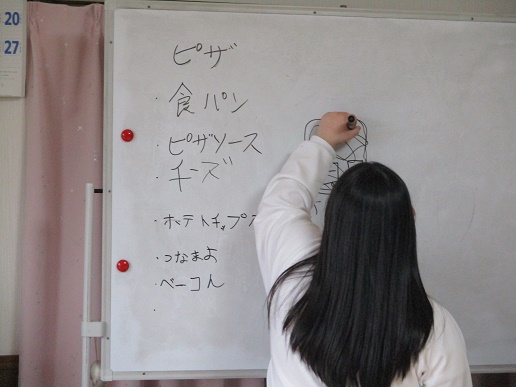 20
27
ピザ
・食パン
・ピザソース
・チーズ
・ポテトチップス
・つなまよ
・べーコん
・